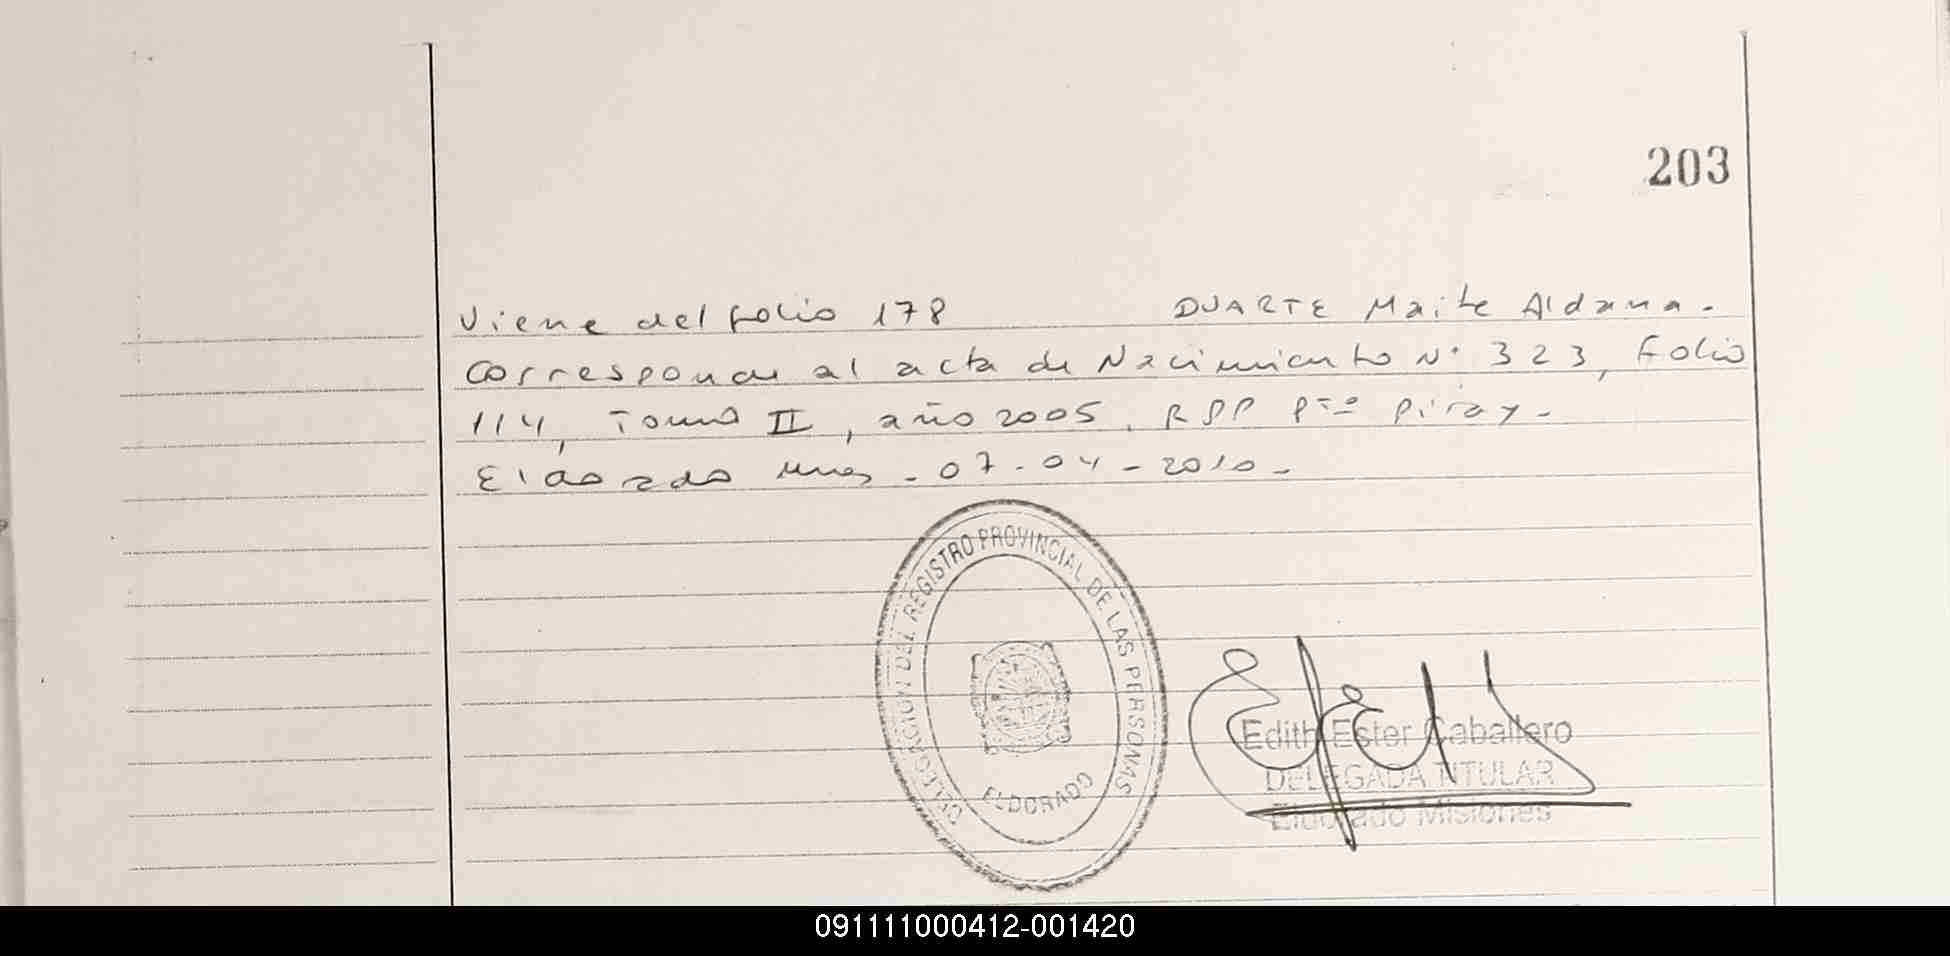 203
Viene del folio 178 DUARTE Maite Aldana.
Corresponde al acta de Nacimiento N° 323, Folio
114, Tomo II, año 2005, RPP Pto Piray.
Eldorado Mnes. 07-04-2010.
DELEGACION DEL REGISTRO PROVINCIAL DE LAS PERSONAS
ELDORADO
Edith Ester Caballero
DELEGADA TITULAR
Eldorado Misiones
091111000412-001420